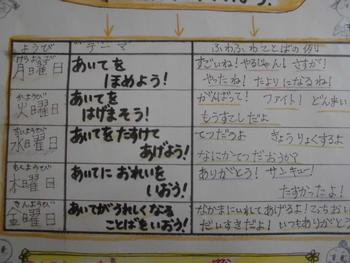 ようび テーマ ふわふわことばの例
げつようび
月曜日 あいてを ほめよう! すごいね! やるじゃん! さすが!
やったね! たよりになるね!
かようび
火曜日 あいてを はげまそう! がんばって! ファイト! どんまい
もうすこしだよ
すいようび
水曜日 あいてをたすけて あげよう! てつだうよ きょうりょくするよ
なにかてつだおうか?
もくようび
木曜日 あいてに おれいを いおう! ありがとう! サンキュー!
たすかったよ!
きんようび
金曜日 あいてがうれしくなる ことばをいおう! なかまにいれてあげるよ! こっちおいで
だいすきだよ! いつもありがとう